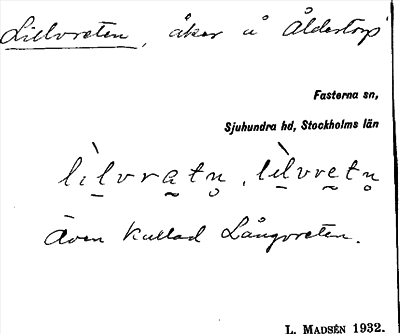 Lillvreten, åker å Åldertorp
Fasterna sn,
Sjuhundra hd, Stockholms län
lìlvratn, lìlvretn
Även kallad Långvreten.
L. MADSÉN 1932.